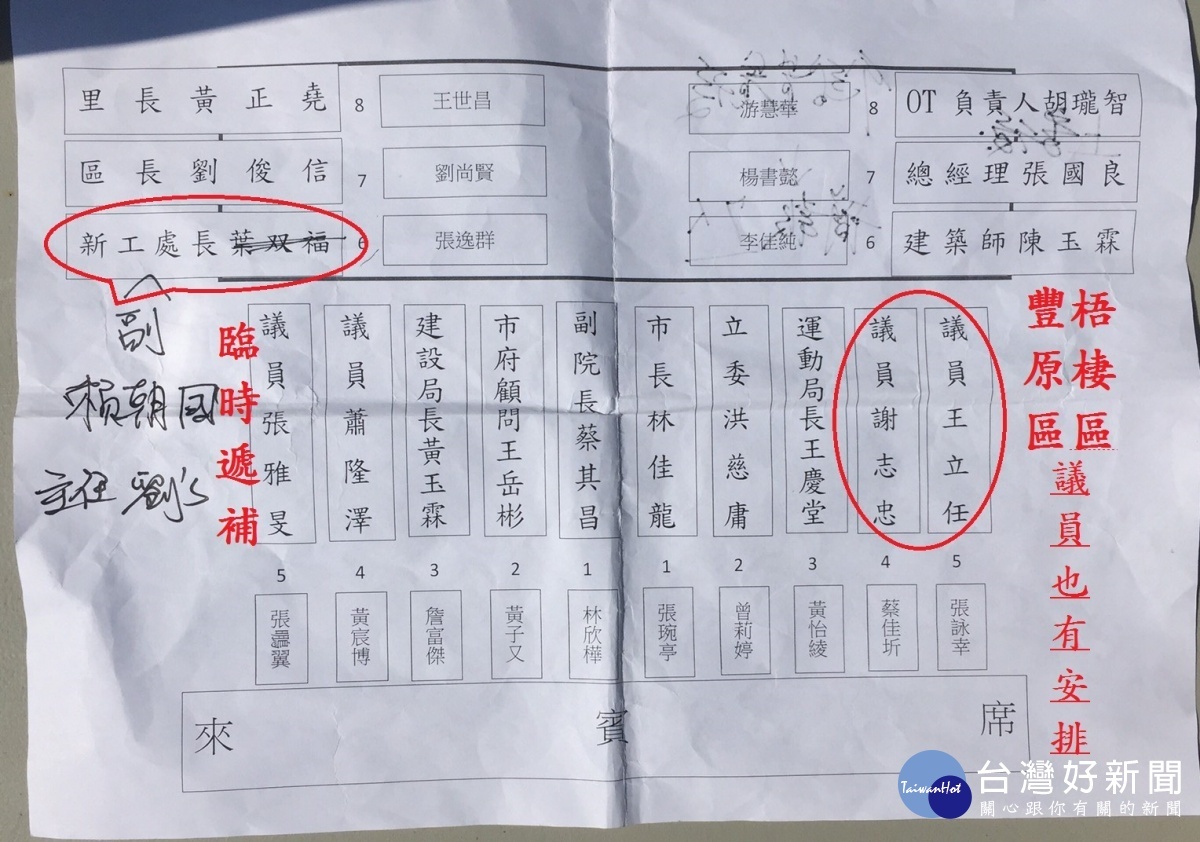 里長黃正堯 8 王世昌 游慧華 8 OT負責人胡瓏智
區長劉俊信 7 劉尚賢 楊書懿 7 總經理張國良
新工處長葉双福 6 張逸群 李佳純 6 建築師陳玉霖
副
賴朝國
主任 劉
臨時遞補
議員張雅旻
議員蕭隆澤
建設局長黃玉霖
市府顧問王岳彬
副院長蔡其昌
市長林佳龍
立委洪慈庸
運動局長王慶堂
議員謝志忠
議員王立任
梧棲區
豐原區
議員也有安排
5 4 3 2 1 1 2 3 4 5
張驫翼
黃宸博
詹富傑
黃子又
林欣樺
張琬亭
曾莉婷
黃怡綾
蔡佳圻
張詠幸
來賓席
TaiwanHot
台灣好新聞
關心跟你有關的新聞